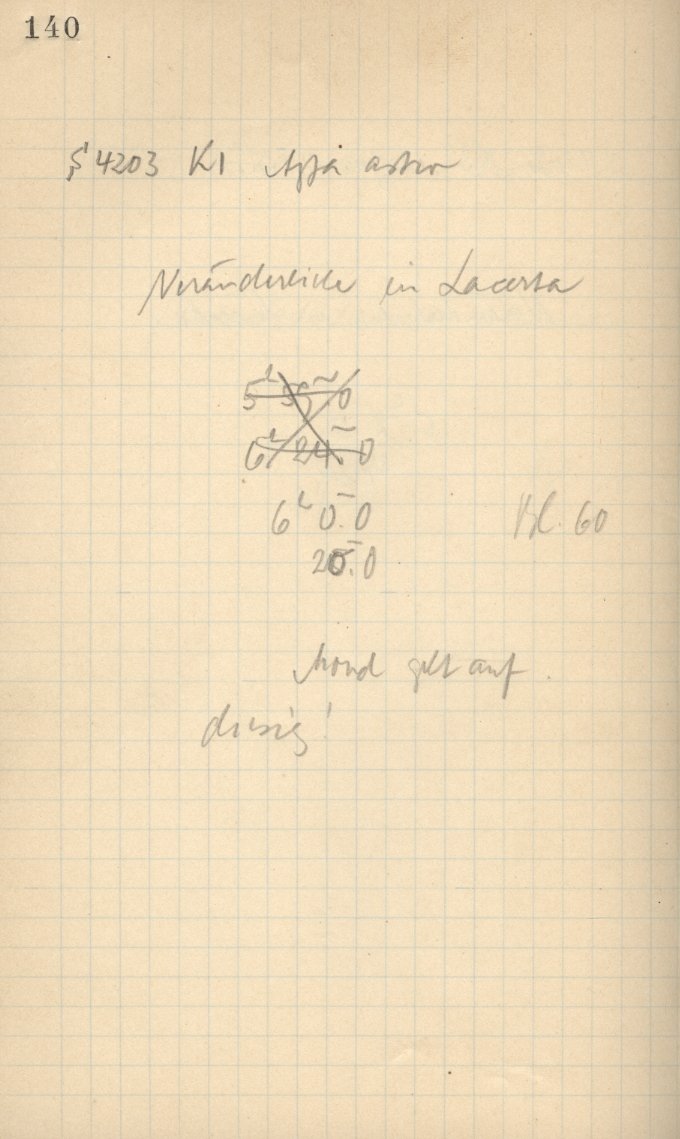 140
S 4203 K1 Agfa astro
Veränderliche in Lacerta
6h 0m.0 Bl. 60
20m.0
Mond geht auf.
diesig!